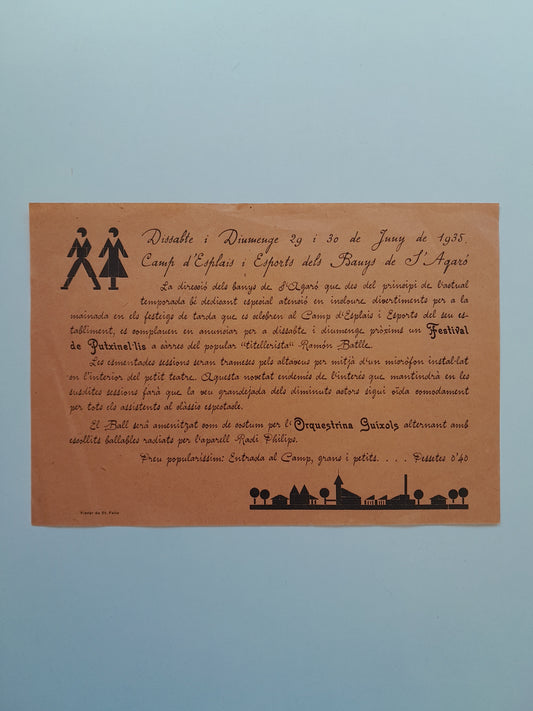 Dissabte i Diumenge 29 i 30 de Juny de 1935.
Camp d'Esplais i Esports dels Banys de S'Agaró
La direcció dels banys de S'Agaró que des del principi de l'actual
temporada bé dedicant especial atenció en incloure divertiments per a la
mainada en els festeigs de tarda que es celebren al Camp d'Esplais i Esports del seu es-
tabliment, es complauen en anunciar per a dissabte i diumenge pròxims un Festival
de Putxinel·lis a càrrec del popular "titellerista" Ramón Batlle.
Les esmentades sessions seran trameses pels altaveus per mitjà d'un micròfon instal·lat
en l'interior del petit teatre. Aquesta novetat endemés de l'interés que mantindrà en les
susdites sessions farà que la veu grandejada dels diminuts actors sigui oïda comodament
per tots els assistents al clàssic espectacle.
El Ball serà amenitzat com de costum per l'Orquestrina Guixols alternant amb
escollits ballables radiats per l'aparell Radi Philips.
Preu popularíssim: Entrada al Camp, grans i petits. . . . Pessetes 0'40
Viader de St. Feliu